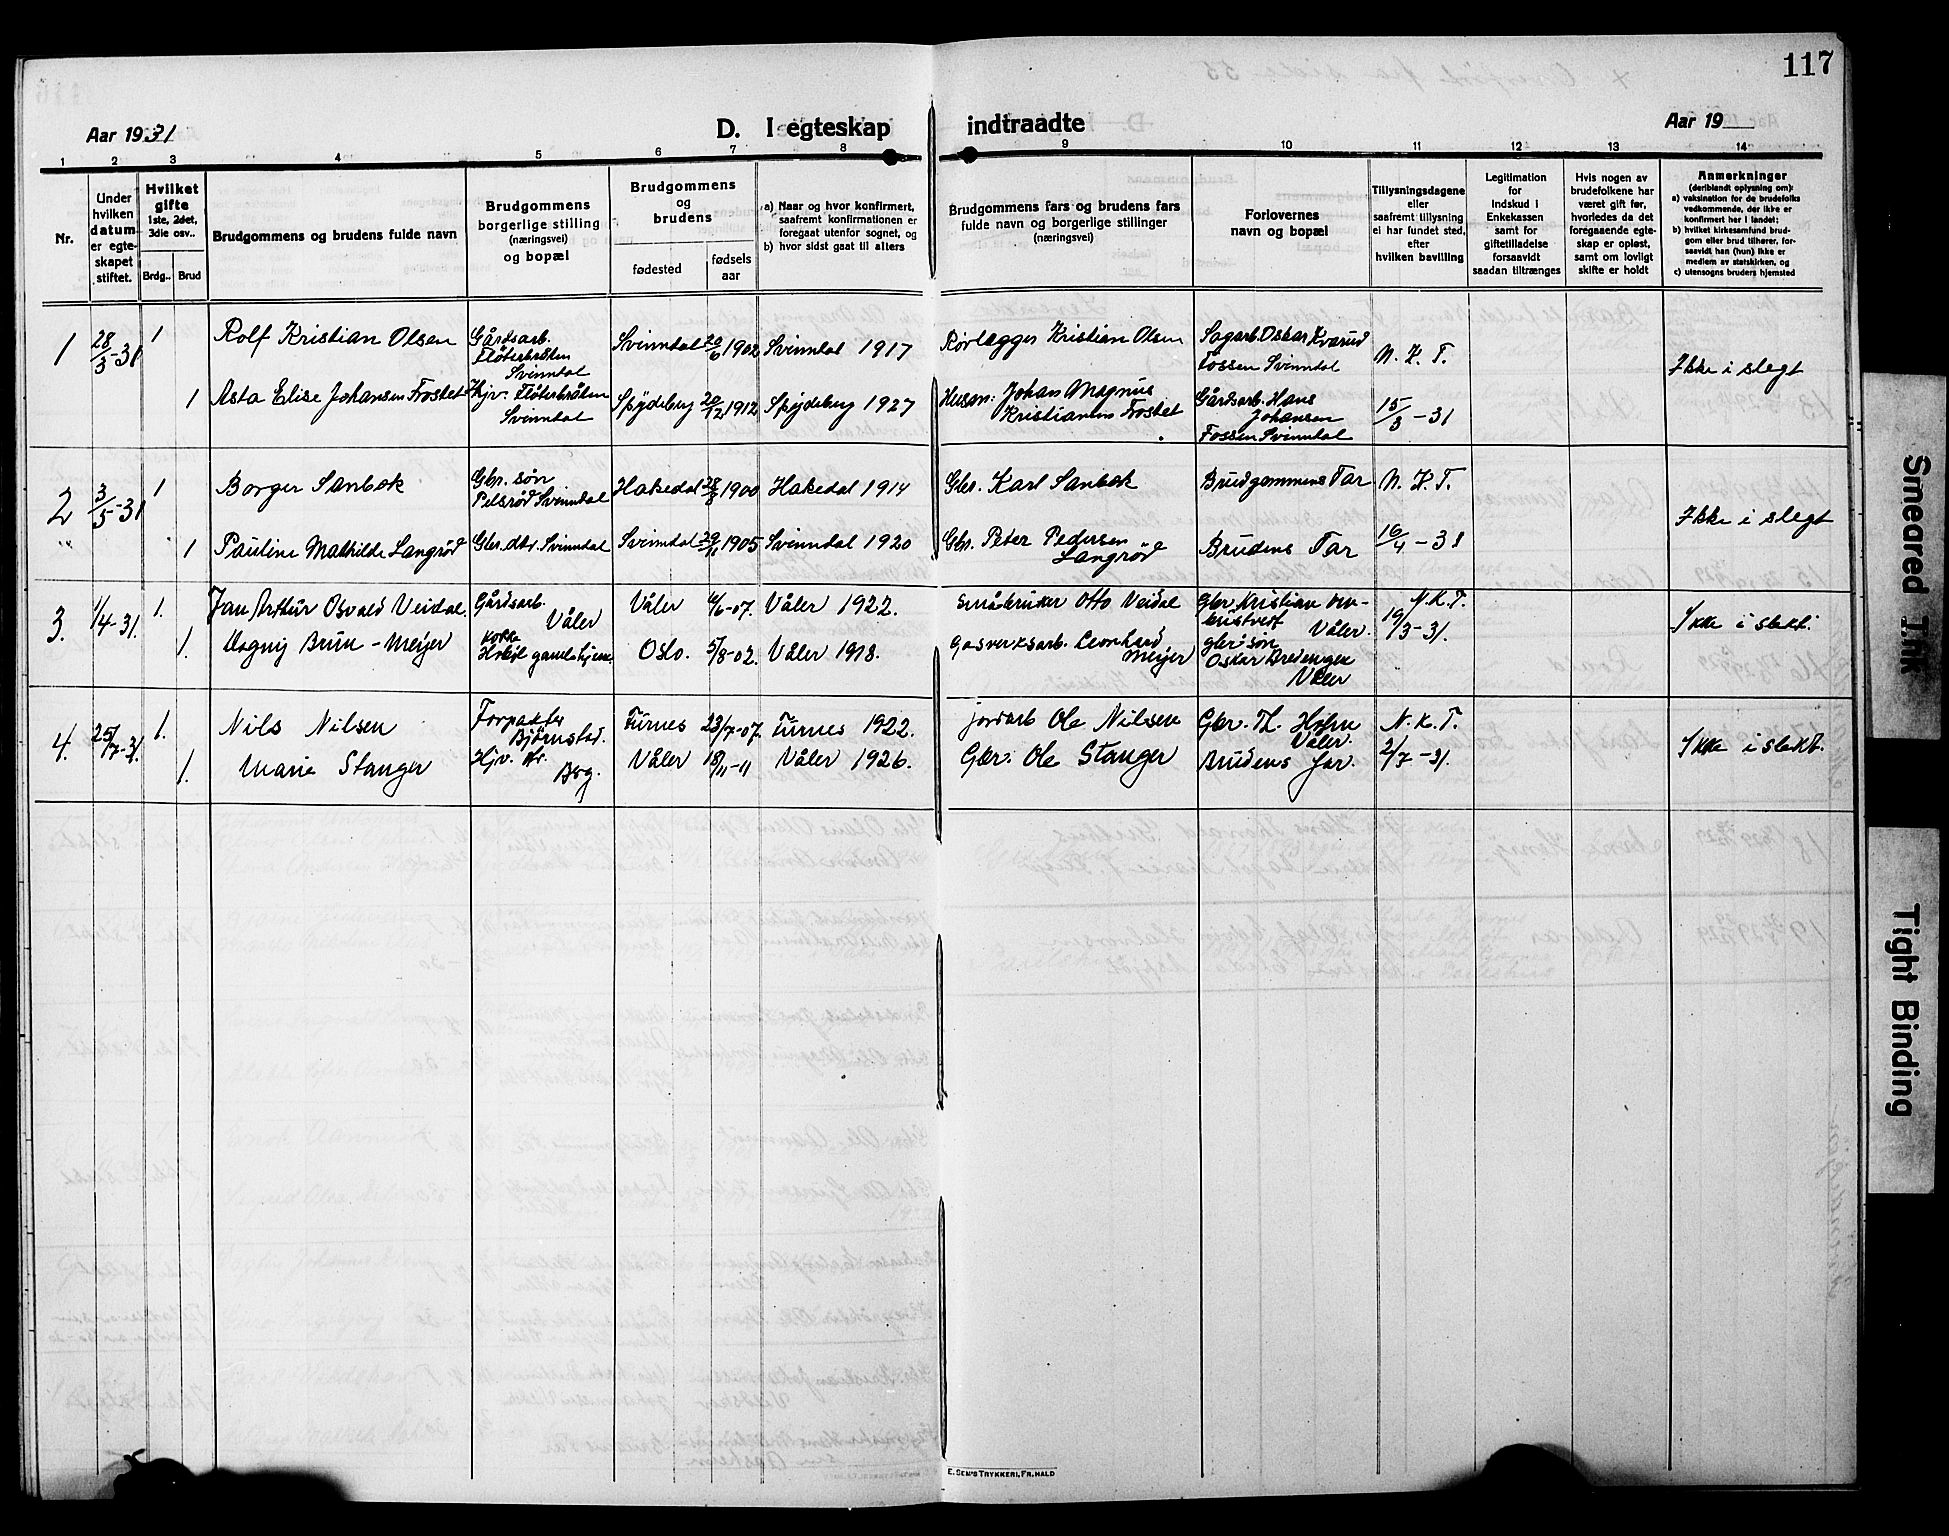 117
Aar 1931
D. I egteskap
indtraadte
Aar 19
1 2 3 4 5 6 7 8 9 10 11 12 13 14
Nr.
Under hvilken datum er egteskapet stiftet.
Hvilket gifte
1ste, 2det, 3die osv..
Brdg.. Brud
Brudgommens og brudens fulde navn
Brudgommens borgerlige stilling (næringsvei) og bopæl
Brudgommens og brudens
fødested
fødsels aar
a) Naar og hvor konfirmert, saafremt konfirmationen er foregaat utenfor sognet, og
b) hvor sidst gaat til alters
Brudgommens fars og brudens fars fulde navn og borgerlige stillinger (næringsvei)
Forlovernes navn og bopæl
Tillysningsdagene eller saafremt tillysning ei har fundet sted, efter hvilken bavilling
Legitimation for Indskud i Enkekassen samt for giftetilladelse forsaavidt saadan tiltrænges
Hvis nogen av brudefolkene har været gift før, hvorledes da det foregaaende egteskap er opløst, samt om lovligt skifte er holdt
Anmerkninger
(deriblandt oplysning om):
a) vaksination for de brudefolks vedkommende, der ikke er konfirmert her i landet;
b) hvilket kirkesamfund brudgom eller brud tilhører, forsaavidt han (hun) ikke er medlem av statskirken, og
c) utensogns bruders hjemsted
1 28/3-31 1 Rolf Kristian Olsen Gårdsarb. Fløterbråten Svinndal Svinndal 20/6 1902 Svinndal 1917 Rørlægger Kristian Olsen Sagarb. Oskar Kværud Fossen Svinndal N. K. T.
1 Asta Elise Johansen Frostet Hjv. Fløterbråten Svinndal Spydeberg 20/12 1912 Spydeberg 1927 Husm. Johan Magnus Kristiansen Frostet Gårdsarb. Hans Johansen Fossen Svinndal 15/3-31
Ikke i slegt
2 3/5-31 1 Borger Sanbæk Gbr. søn Pelsrød Svinndal Hakedal 28/3 1900 Hakedal 1914 Gbr. Karl Sanbæk Brudgommens Far N. K. T.
" 1 Pauline Mathilde Langrød Gbr. dtr. Svinndal Svinndal 1905 Svinndal 1920 Gbr. Peter Pedersen Langrød Brudens Far 16/4-31
Ikke i slegt
3. 1/4-31. 1. Jan Arthur Osvald Veidal. Gårdsarb. Våler Våler 4/6-07. Våler 1922. Småbruker Otto Veidal Gbr. Kristian Våler. N.K.T.
1. Dagny Brun-Meyer Kokke Hobøl gamlehjem. Oslo. 5/8-02. Våler 1918. Gasverksarb. Leonhard Meijer gbr. søn Oskar Våler 19/3-31.
Ikke i slekt.
4. 25/7-31. 1. Nils Nilsen Forpakter Bjørnstad. Furnes 23/7-07. Furnes 1922. Jordarb Ole Nilsen Gbr. Th. Våler. N. K. T.
1. Marie Stanger Hjv. Borg. Våler 18/11-11 Våler 1926. Gbr. Ole Stanger Brudens far. 2/7-31.
Ikke i slekt.
E. SEM'S TRYKKERI, FR.HALD
Smeared Ink
Tight Binding